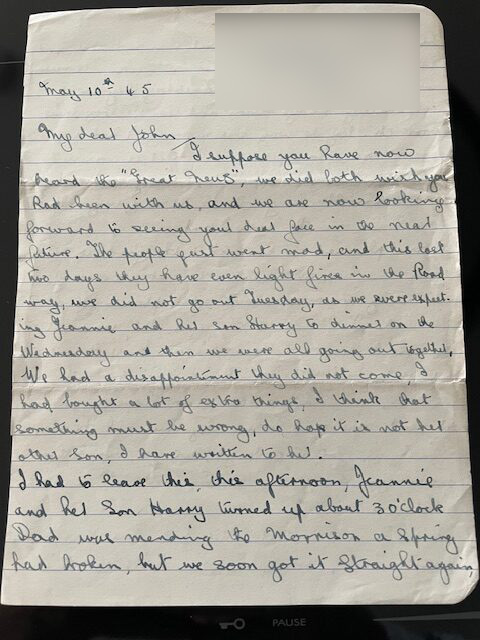 May 10th 45
My dear John
I suppose you have now
heard the "Great News", we did both wish you
had been with us, and we are now looking
forward to seeing your dear face in the near
future. The people just went mad, and this last
two days they have even light fires in the Road
way, we did not go out Tuesday, as we were expect-
ing Jeannie and her son Harry to dinner on the
Wednesday and then we were all going out together,
We had a disappointment they did not come, I
had bought a lot of extra things, I think that
something must be wrong, do hope it is not her
other son, I have written to her.
I had to leave this, this afternoon, Jeannie
and her Son Harry turned up about 3 o'clock
Dad was mending the Morrison a spring
had broken, but we soon got it straight again,
PAUSE